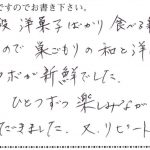 ですのでお書き下さい。
段 洋菓子ばかり 食べる
ので 巣ごもりの和と洋
ラボが新鮮でした。
ひとつずつ 楽しみなが
ただきました。又、リピート